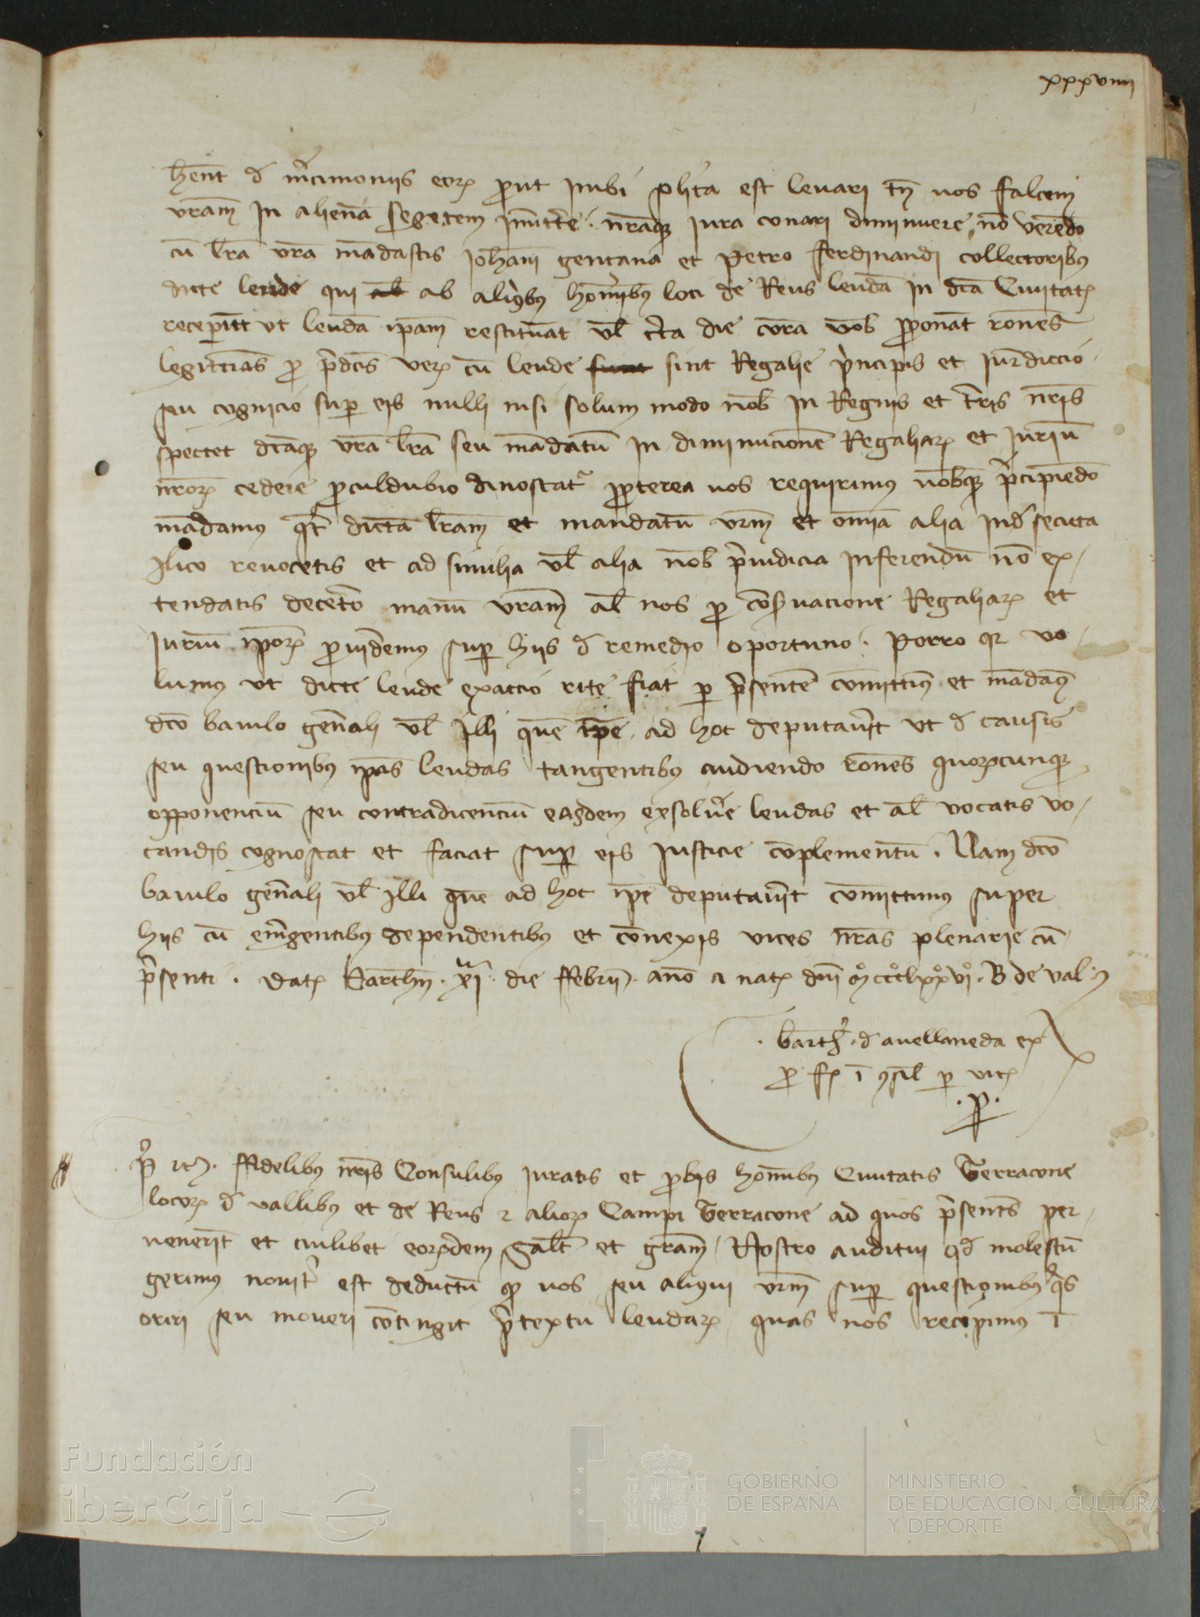 xxxviiii
hent d mcimoniis eorz prout inibi solita est levari tn vos falcem
vram in aliena segetem imitte nraque iura conari diminuere no veredo
cu lra vra madastis iohani gentana et Petro ferdinandi collectoribus
dicte lende qui ab ab aliqbus hominibus loci de Reus lenda in dca Civitate
receperitt ut lenda ipam restituat vl certa die cora vob proponat rones
legittias pro predcis verz cu lende sunt sint Regalie principis et iurdiccio
seu cognicio super eis nulli nisi solum modo nob in Regnis et terris nris
spectet dcaque vra lra seu madatu in diminucione Regaliarz et juriu
nrorz cedere proculdubio dinoscatr propterea vos requirimus vobque precipiedo
madamus qt dicta lram et mandatu vrm et omia alia ind secuta
ilico revocetis et ad similia vl alia nob preiudicia inferendu no ex-
tendatis decetero manu vram al nos pro coservacione Regaliarz et
juriu ipsorz providemus super hiis d remedio oportuno. Porro qr vo-
lumus ut dicte lende exaccio rite fiat per presente comittimus et madamus
dco baiulo generali vl illi que ipse ad hoc deputaverit ut d causis
seu questionibus ipas lendas tangentibus audiendo rones quorzcunque
opponenciu seu contradicenciu easdem exsolvere lendas et al vocatis vo-
candis cognoscat et faciat super eis justicie complementu. Nam dco
baiulo generali vl illi que ad hoc ipe deputaverit comittimus super
hiis cu emergentibus dependentibus et conexis vices nras plenarie cu
presenti. Dat Barchn xi die febrii ano a nat dni mcccclxxvi. B de val
barth d avellaneda ex
pro f i consil p vic
p
pr it. ffidelibus nris Consulibus juratis et probis hominibus Civitatis Terracone
locorz d vallibus et de Reus z aliorz Campi Terracone ad quos presentes per-
venerit et cuilibet eorzdem salt et gram. Nostro auditui qd molestu
gerimus noviter est deductu qp vos seu aliqui vrm super questionibus qs
oriri seu moveri cotingit pretextu lendarz quas nos recipimus i
Fundación
iberCaja
GOBIERNO
DE ESPAÑA
MINISTERIO
DE EDUCACIÓN, CULTURA
Y DEPORTE